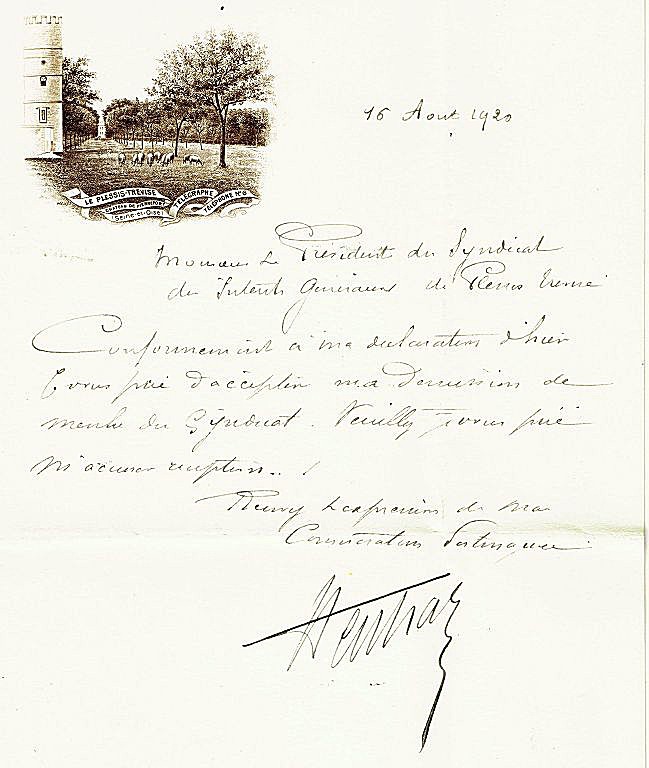 LE PLESSIS-TRÉVISE
CHATEAU DE PIERREFORT
(Seine-et-Oise)
TÉLÉGRAPHE
TÉLÉPHONE N° 6
16 Aout 1920
Monsieur Le Président du Syndicat
des Intérêts Généraux du Plessis Trevise
Conformement à ma declaration d'hier
Je vous prie d'accepter ma Demission de
membre du Syndicat. Veuillez je vous prie
m'accuser reception..
l'expression de ma
Consideration